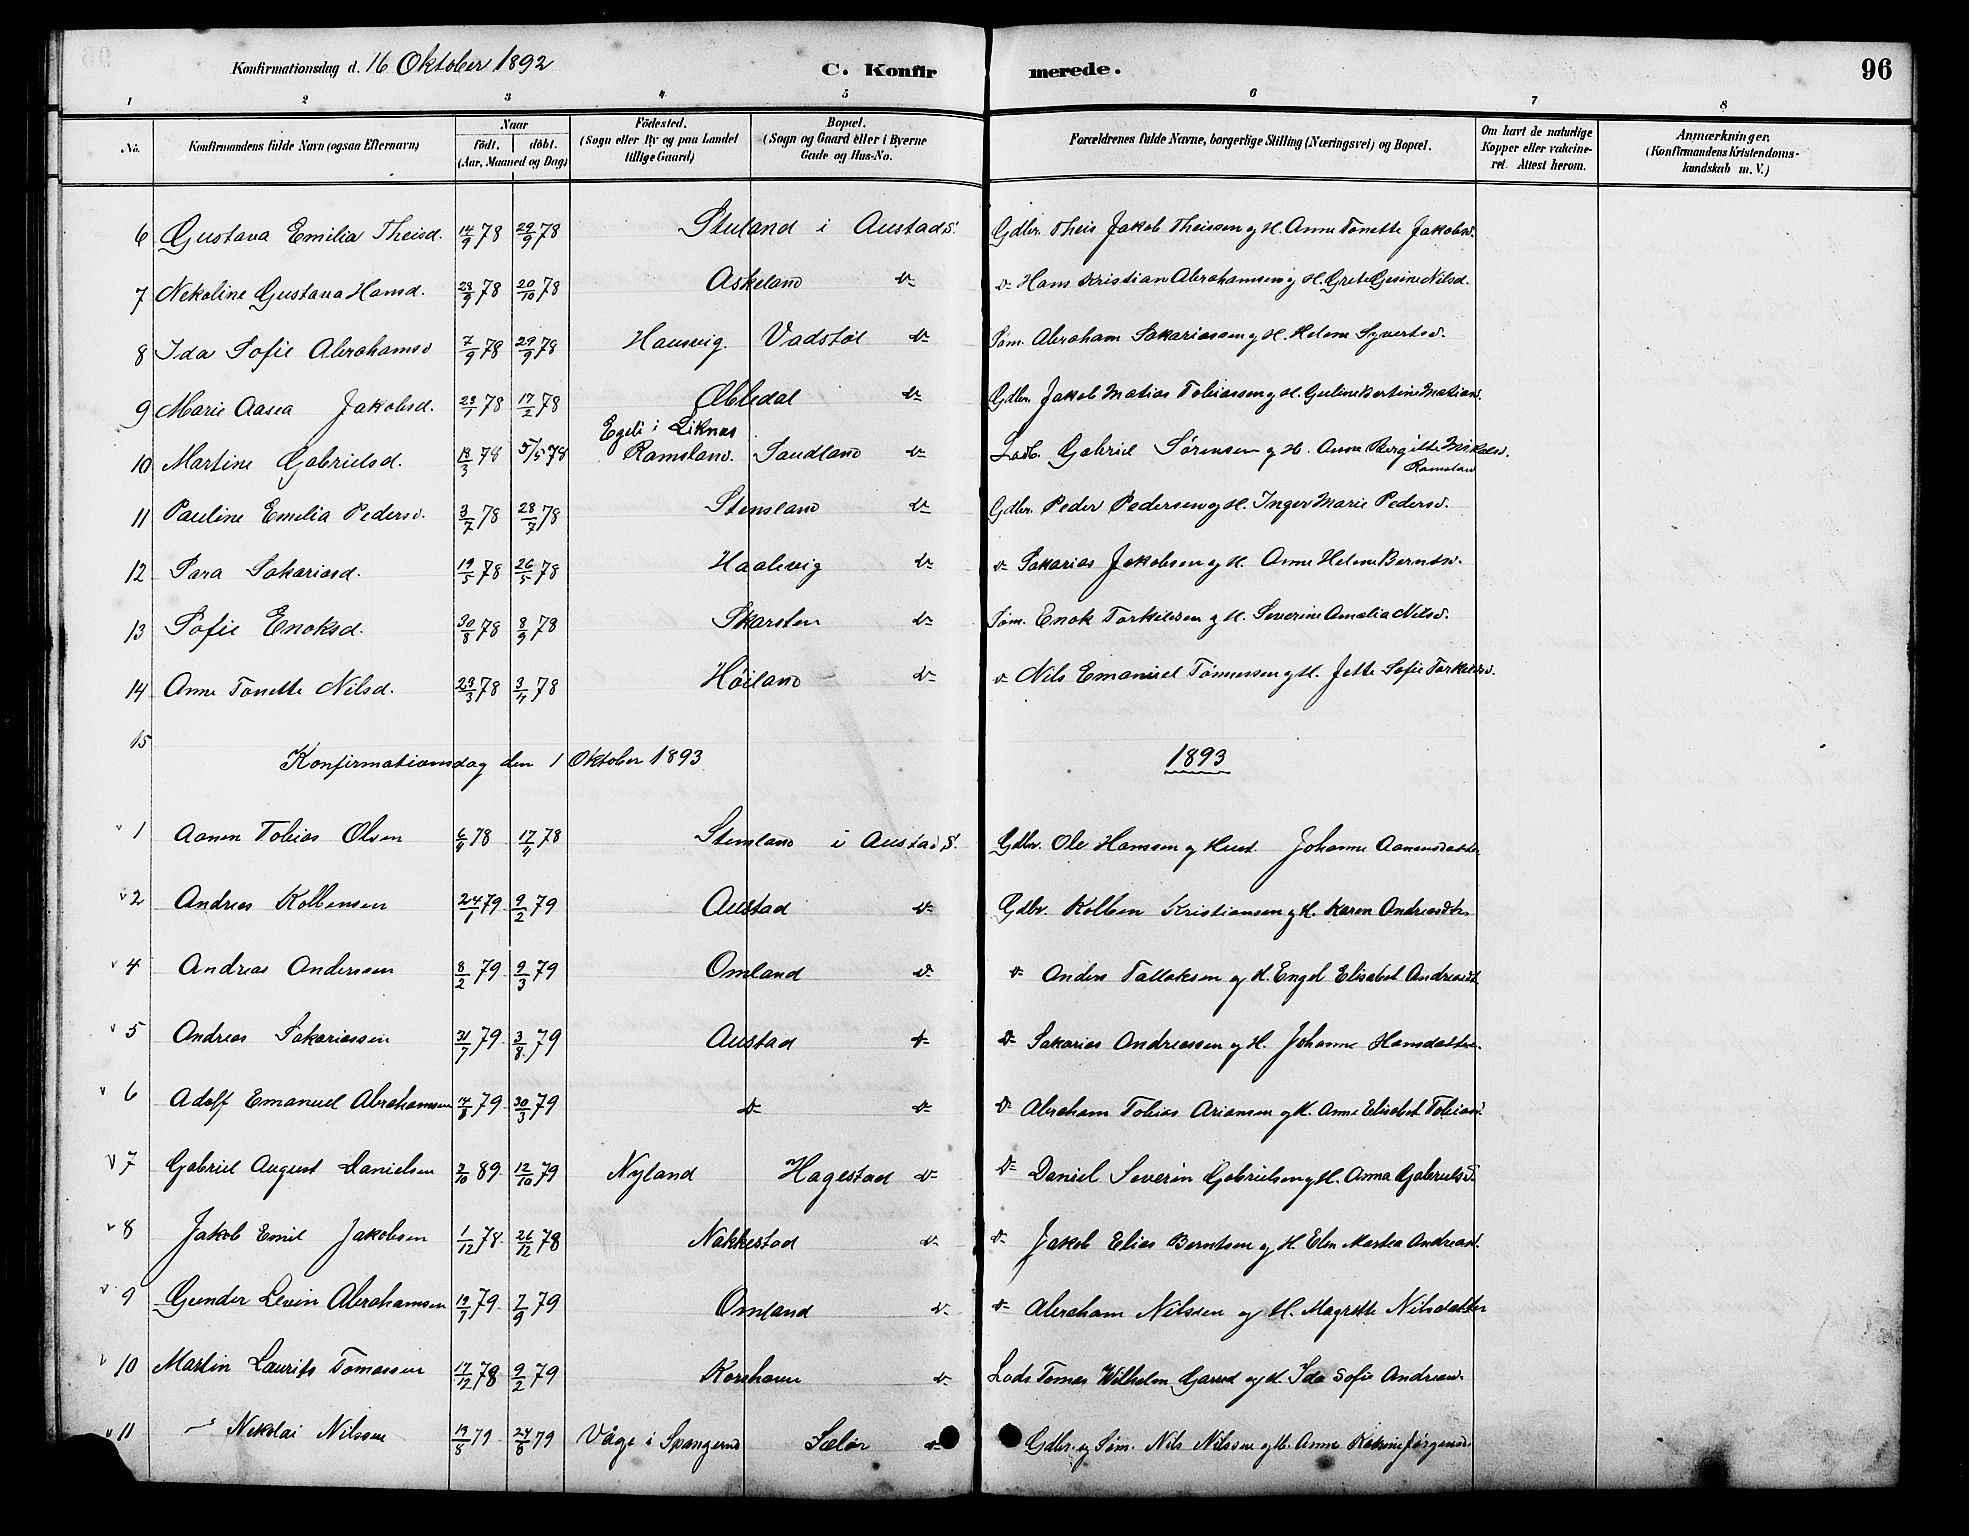 Konfirmationsdag d. 16 Oktober 1892 C. Konfirmerede. 96
1 2 3 4 5 6 7 8
No. Konfirmandens fulde Navn (ogsaa Efternavn) Naar født. døbt. (Aar, Maaned og Dag) Fødested. (Sogn eller By og paa Landet tillige Gaard) Bopæl. (Sogn og Gaard eller i Byerne Gade og Hus-No. Forældrenes fulde Navne, borgerlige Stilling (Næringsvei) og Bopæl. Om havt de naturlige Kopper eller vakcineret. Attest herom. Anmærkninger. (Konfirmandens Kristendomskundskab m. V.)
6 Gustava Emilia Theisd. 14/9 78 29/9 78 i Austad S. Gdbr. Theis Jakob Theissen og H. Anne Tonette Jakobsd.
7 Nekoline Gustava Hansd. 28/9 78 20/10 78 Askeland do Hans Kristian Abrahamsen og H. Grete Gesine Nilsd.
8 Ida Sofie Abrahamsd 7/9 78 29/9 78 Hausvig. Vadstøl do Søm. Abraham Sakariassen og H. Helene Syvertsd.
9 Marie Aasea Jakobsd. 23/1 78 17/2 78 Øbledal do Gdbr. Jakob Matias Tobiassen og H. Guline Bertine Matiasd.
10 Martine Gabrielsd. 18/3 78 5/5 78 Egeli i Liknes Ramsland. Sandland do Gabriel Sørensen og H. Anne Bergitte Mikelsd. Ramsland
11 Pauline Emelia Pedersd. 3/7 78 28/7 78 Stensland do Gdbr. Peder Pedersen og H. Inger Marie Pedersd.
12 Sara Sakariasd. 19/5 78 26/5 78 Haalevig do Sakarias Jakobsen og H. Anne Helene Berntsd.
13 Sofie Enoksd. 30/8 78 8/9 78 Skarsten do Søm. Enok Torkildsen og H. Severine Amalia Nilsd.
14 Anne Tonette Nilsd. 23/3 78 3/4 78 Høiland do Nils Emanuel Tønnessen og H. Jette Sofie Torkildsd.
15
Konfirmationsdag den 1 Oktober 1893 1893
1 Aanen Tobias Olsen 6/4 78 17/4 78 Stensland i Austad S. Gdbr. Ole Hanssen og Hust. Johanne Aanensdatter
2 Andreas Kolbensen 24/1 79 9/2 79 Austad do Gdbr. Kolben Kristiansen og H. Karen Andreasdtr
4 Andreas Anderssen 8/2 79 9/3 79 Omland do Anders Tallaksen og H. Engel Elisabet Andreasdt
5 Andreas Sakariassen 21/7 79 3/8 79 Austad do Sakarias Andreassen og H. Johanne Hansdatter
6 Adolf Emanuel Abrahamsen 79 30/3 79 do do do Abraham Tobias Ariansen og H. Anne Elisabet Tobiasd.
7 Gabriel August Danielsen 2/10 89 12/10 79 Nyland Hagestad do do Daniel Severin Gabrielsen og H. Anna Gabrielsd.
8 Jakob Emil Jakobsen 1/12 78 26/12 78 Nakkestad do do Jakob Elias Berntsen og H. Elen Martea Andreasd.
9 Gunder Levin Abrahamsen 19/7 79 7/9 79 Omland do do Abraham Nilssen og H. Magrette Nilsdatter
10 Martin Laurits Tomassen 17/12 78 9/2 79 Korshavn do Lods Tomas Wilhelm Garred og H. Ida Sofie Andreasd.
11 Nekolai Nilssen 19/8 79 24/8 79 Våge i Spangereid Sælør do Gdbr. og Søm. Nils Nilssen og H. Anne Jørgensd